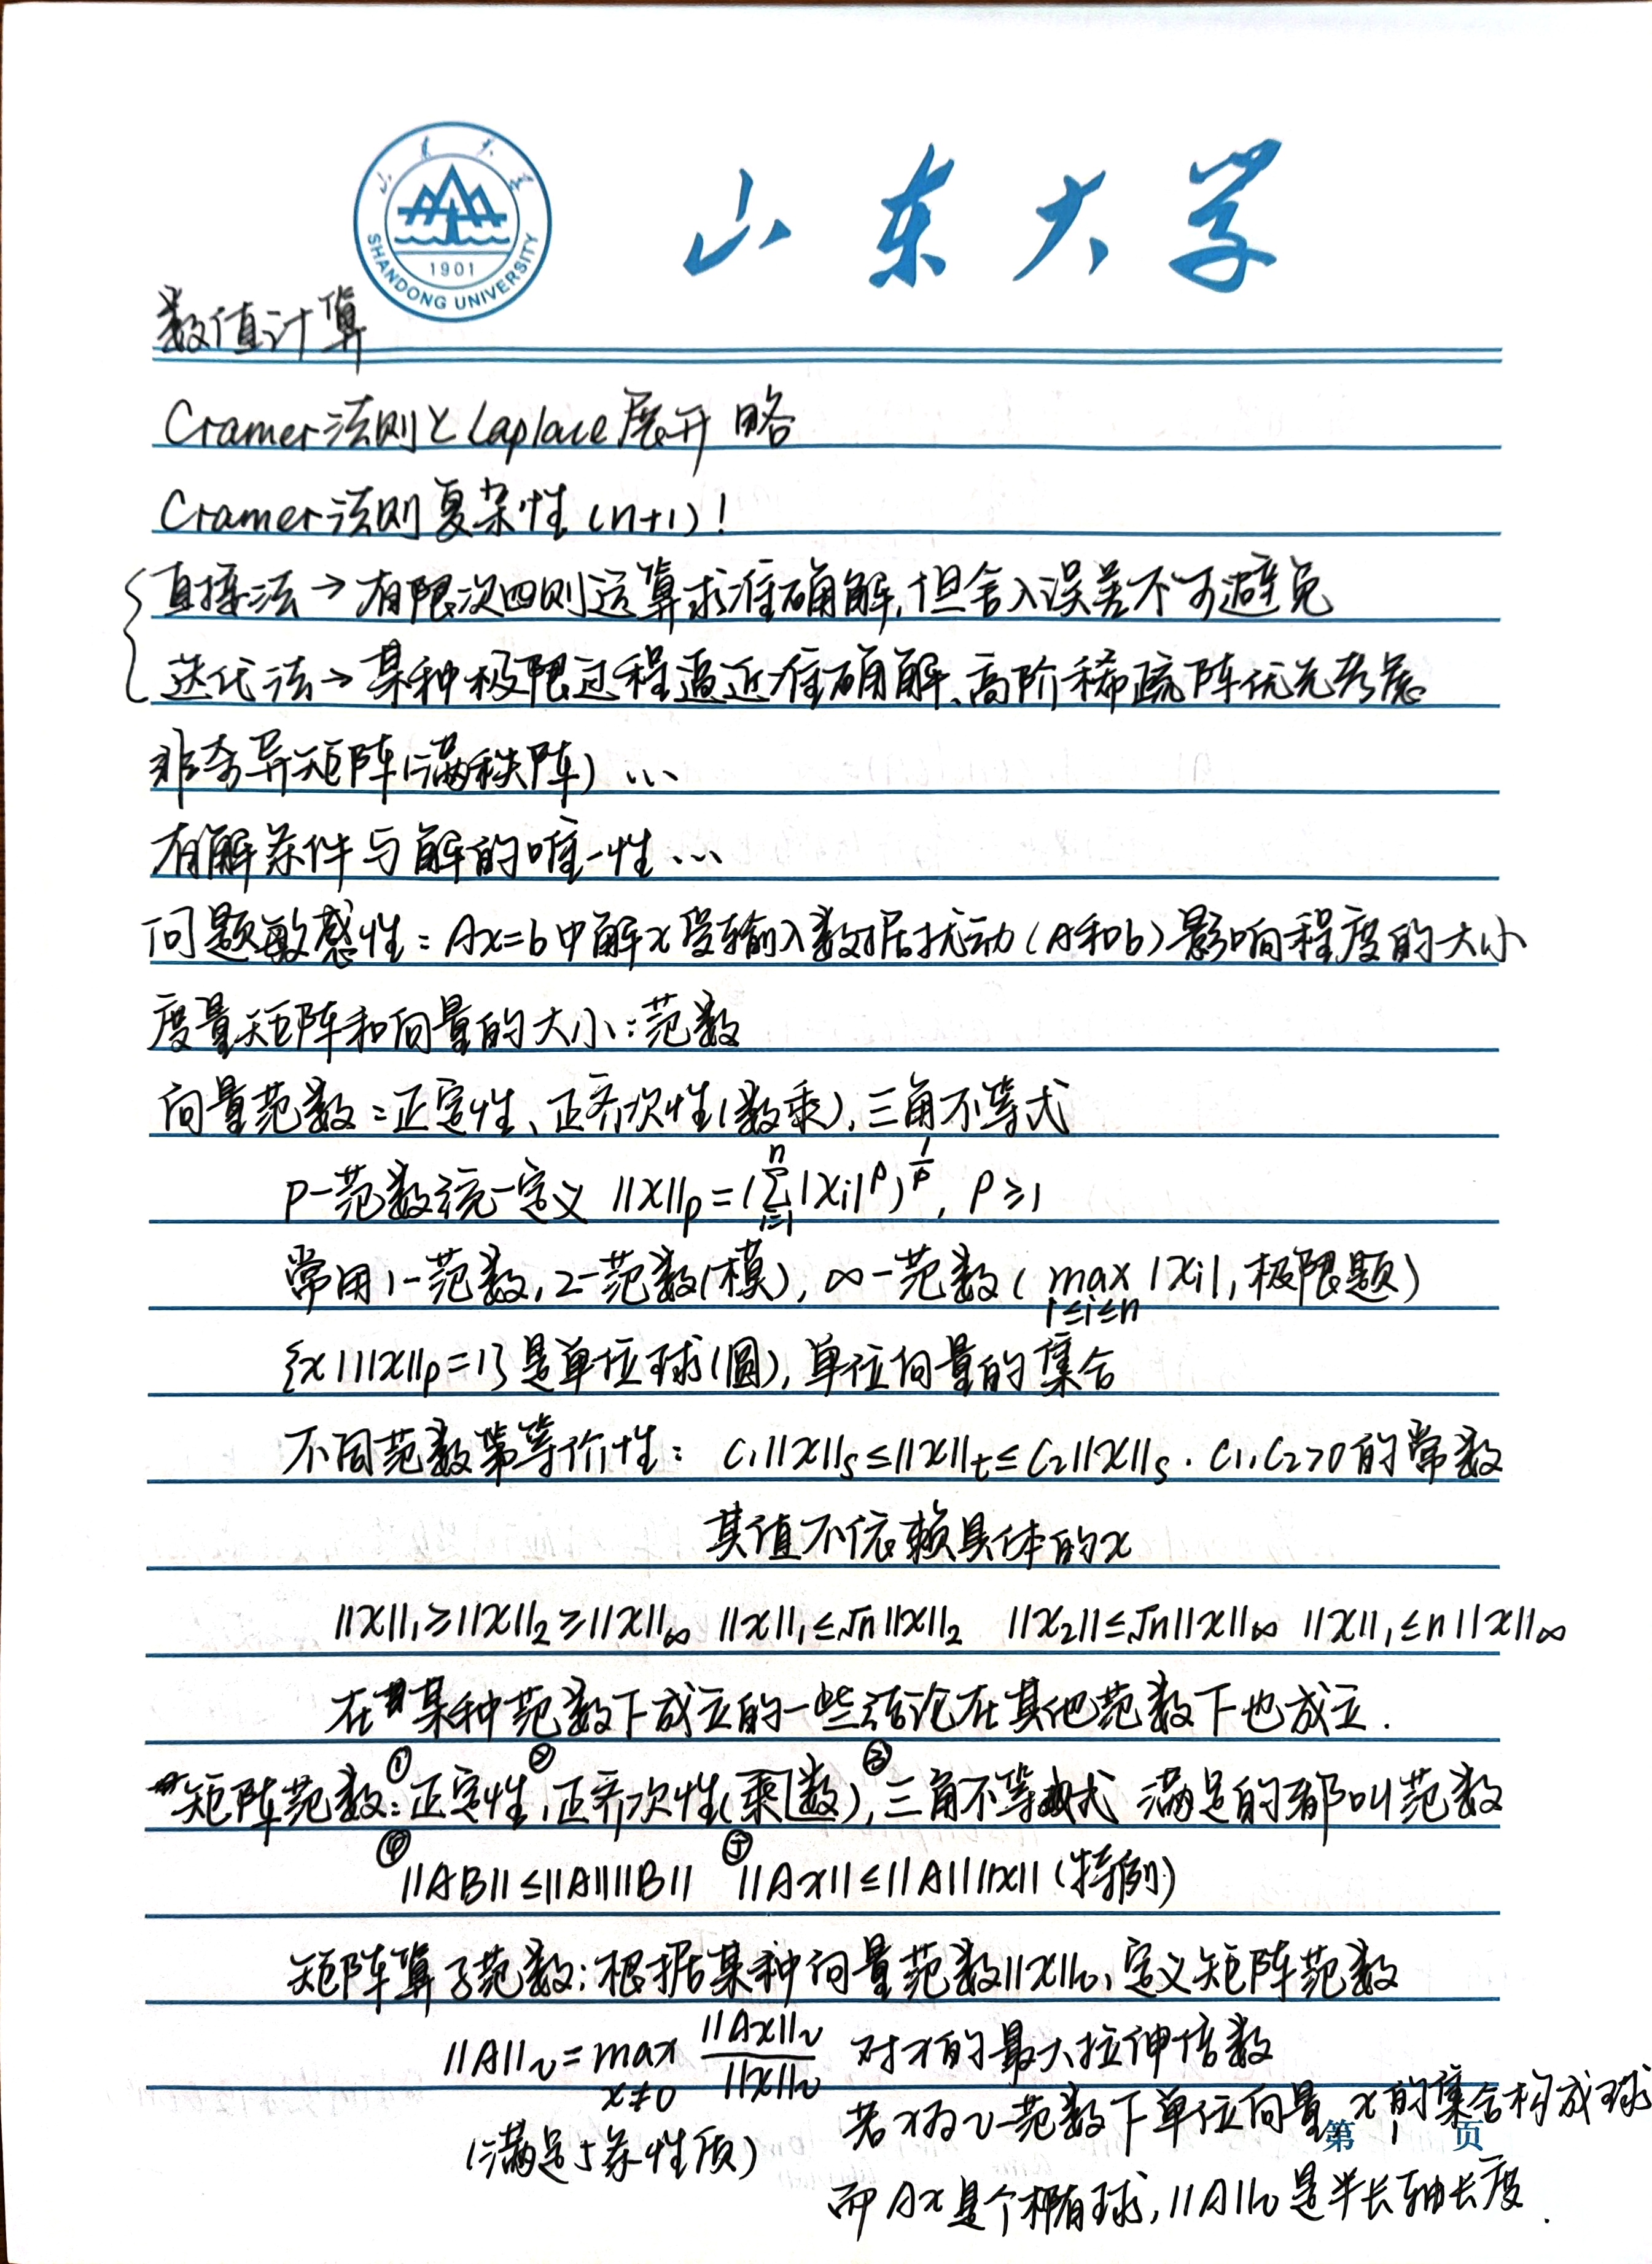 山东大学
山东大学
1901
SHANDONG UNIVERSITY
数值计算
Cramer法则与Laplace展开 略
Cramer法则复杂性 (n+1)!
直接法→有限次四则运算求准确解,但舍入误差不可避免
迭代法→某种极限过程逼近准确解、高阶稀疏阵优先考虑
非奇异矩阵(满秩阵)…
有解条件与解的唯一性…
问题敏感性:Ax=b中解x受输入数据扰动(A和b)影响程度的大小
度量矩阵和向量的大小:范数
向量范数:正定性、正齐次性(数乘),三角不等式
p-范数统一定义 ||x||ₚ=(∑ⁿᵢ₌₁|xᵢ|ᵖ)^(1/p), p≥1
常用1-范数,2-范数(模),∞-范数(max_{1≤i≤n}|xᵢ|,极限题)
{x|||x||ₚ=1}是单位球(圆),单位向量的集合
不同范数等价性: C₁||x||ₛ≤||x||ₜ≤C₂||x||ₛ. C₁,C₂>0的常数
其值不依赖具体的x
||x||₁≥||x||₂≥||x||∞ ||x||₁≤√n||x||₂ ||x₂||≤√n||x||∞ ||x||₁≤n||x||∞
在某种范数下成立的一些结论在其他范数下也成立.
矩阵范数:①正定性,②正齐次性(乘数),③三角不等式 满足的都叫范数
④||AB||≤||A||||B|| ⑤||Ax||≤||A||||x||(特例)
矩阵算子范数:根据某种向量范数||x||ᵥ,定义矩阵范数
||A||ᵥ=max_{x≠0} ||Ax||ᵥ/||x||ᵥ 对x的最大拉伸倍数
(满足5条性质)
若x为v-范数下单位向量,x的集合构成球
第 1 页
而Ax是个椭球,||A||ᵥ是半长轴长度.